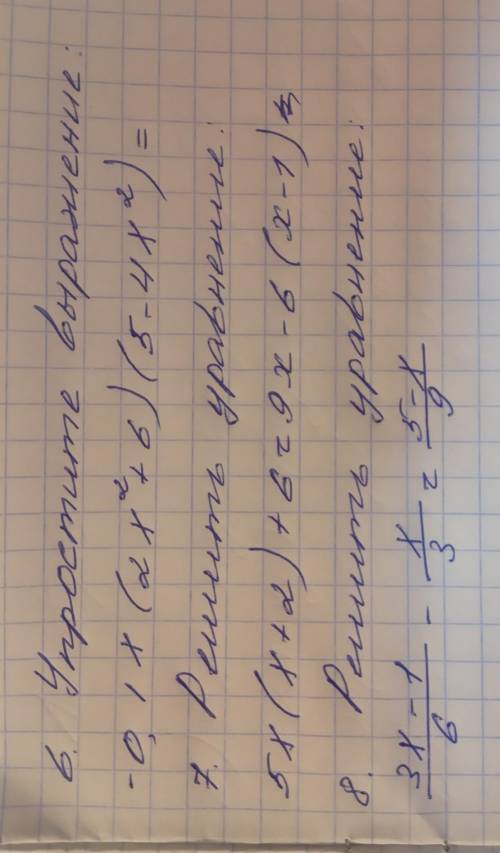 6. Упростите выражение:
-0,1x(2x²+6)(5-4x²)=
7. Решить уравнение:
5x(x+2)+6=9x-6(x-1)
8. Решить уравнение:
(3x-1)/6 - x/3 = (5-x)/9